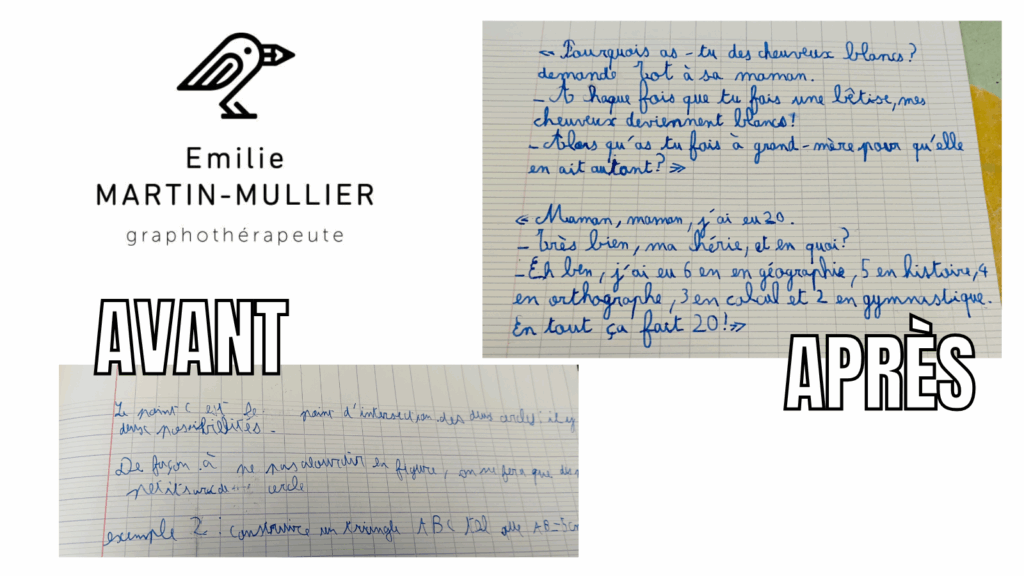 Emilie
MARTIN-MULLIER
graphothérapeute
« Pourquois as-tu des cheuveux blancs?
demande Tot à sa maman.
- A haque fois que tu fais une bêtise, mes
cheuveux deviennent blancs!
- Alors qu'as tu fais à grand-mère pour qu'elle
en ait autant? »
« Maman, maman, j'ai eu 20.
- Très bien, ma hérie, et en quoi?
- Eh ben, j'ai eu 6 en en géographie, 5 en histoire, 4
en orthographe, 3 en calcul et 2 en gymnastique.
En tout ça fait 20! »
AVANT
APRÈS
Le point C est le point d'intersection des deux cercles: il y
deux possibilités.
De façon à ne pas alourdir en figure, on ne fera que des
petits arc de cercle
exemple 2: construire un triangle ABC tel que AB=3cm